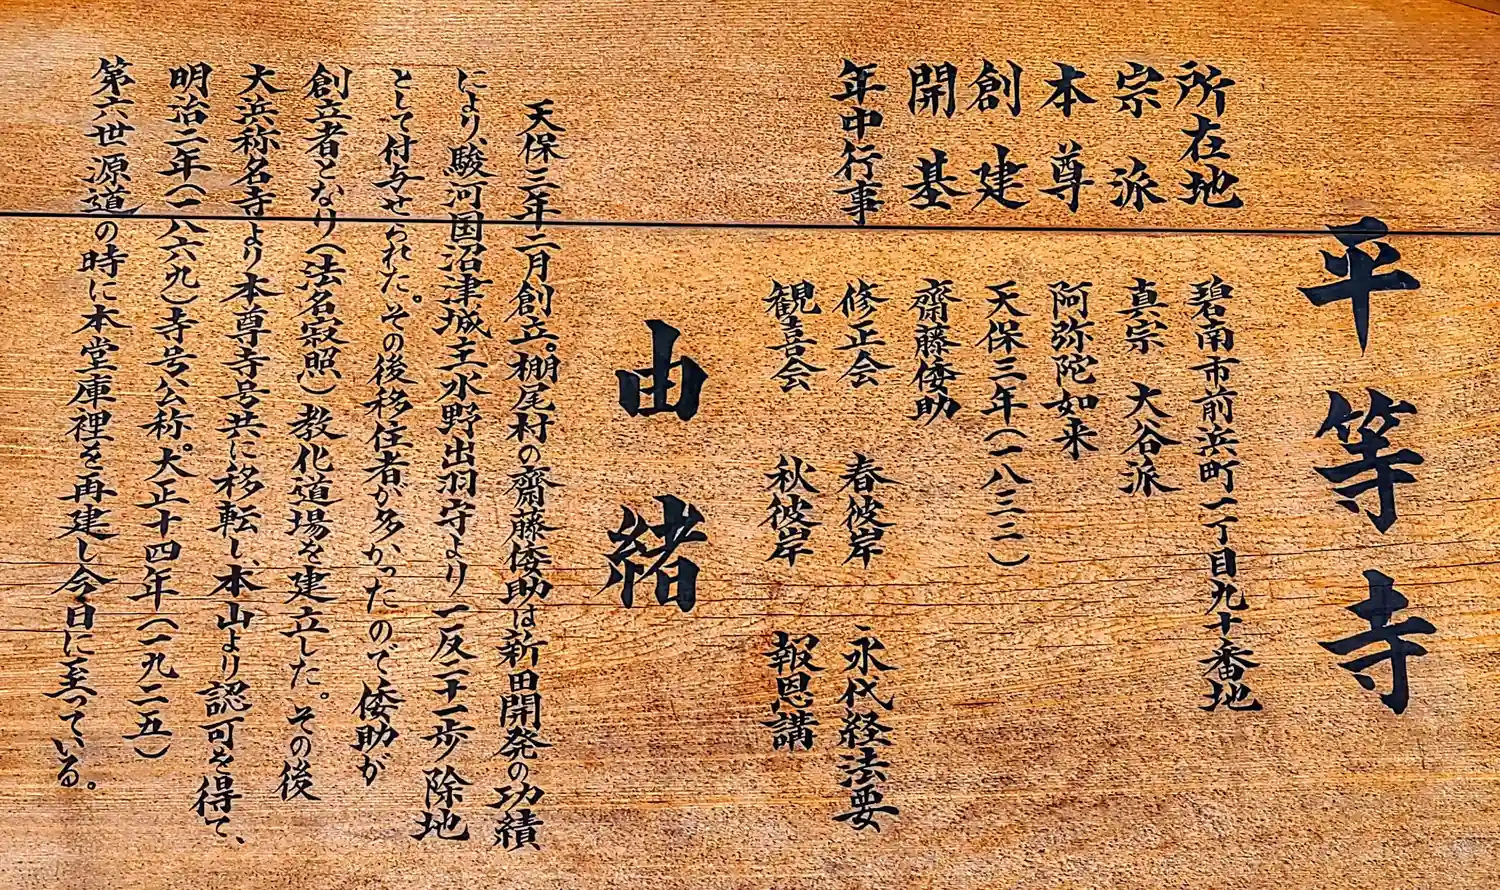 平等寺
所在地 碧南市前浜町一丁目九十番地
宗派 真宗 大谷派
本尊 阿弥陀如来
創建 天保三年(一八三二)
開基 齋藤倭助
年中行事 修正会 春彼岸 永代経法要
観喜会 秋彼岸 報恩講
由緒
天保三年二月創立。棚尾村の齋藤倭助は新田開発の功績
により、駿河国沼津城主水野出羽守より一反二十一歩 除地
として付与せられた。その後移住者が多かったので倭助が
創立者となり(法名寂照)教化道場を建立した。その後
大浜称名寺より本尊寺号共に移転し、本山より認可を得て、
明治二年(一八六九)寺号公称。大正十四年(一九二五)
第六世源道の時に本堂庫裡を再建し今日に至っている。